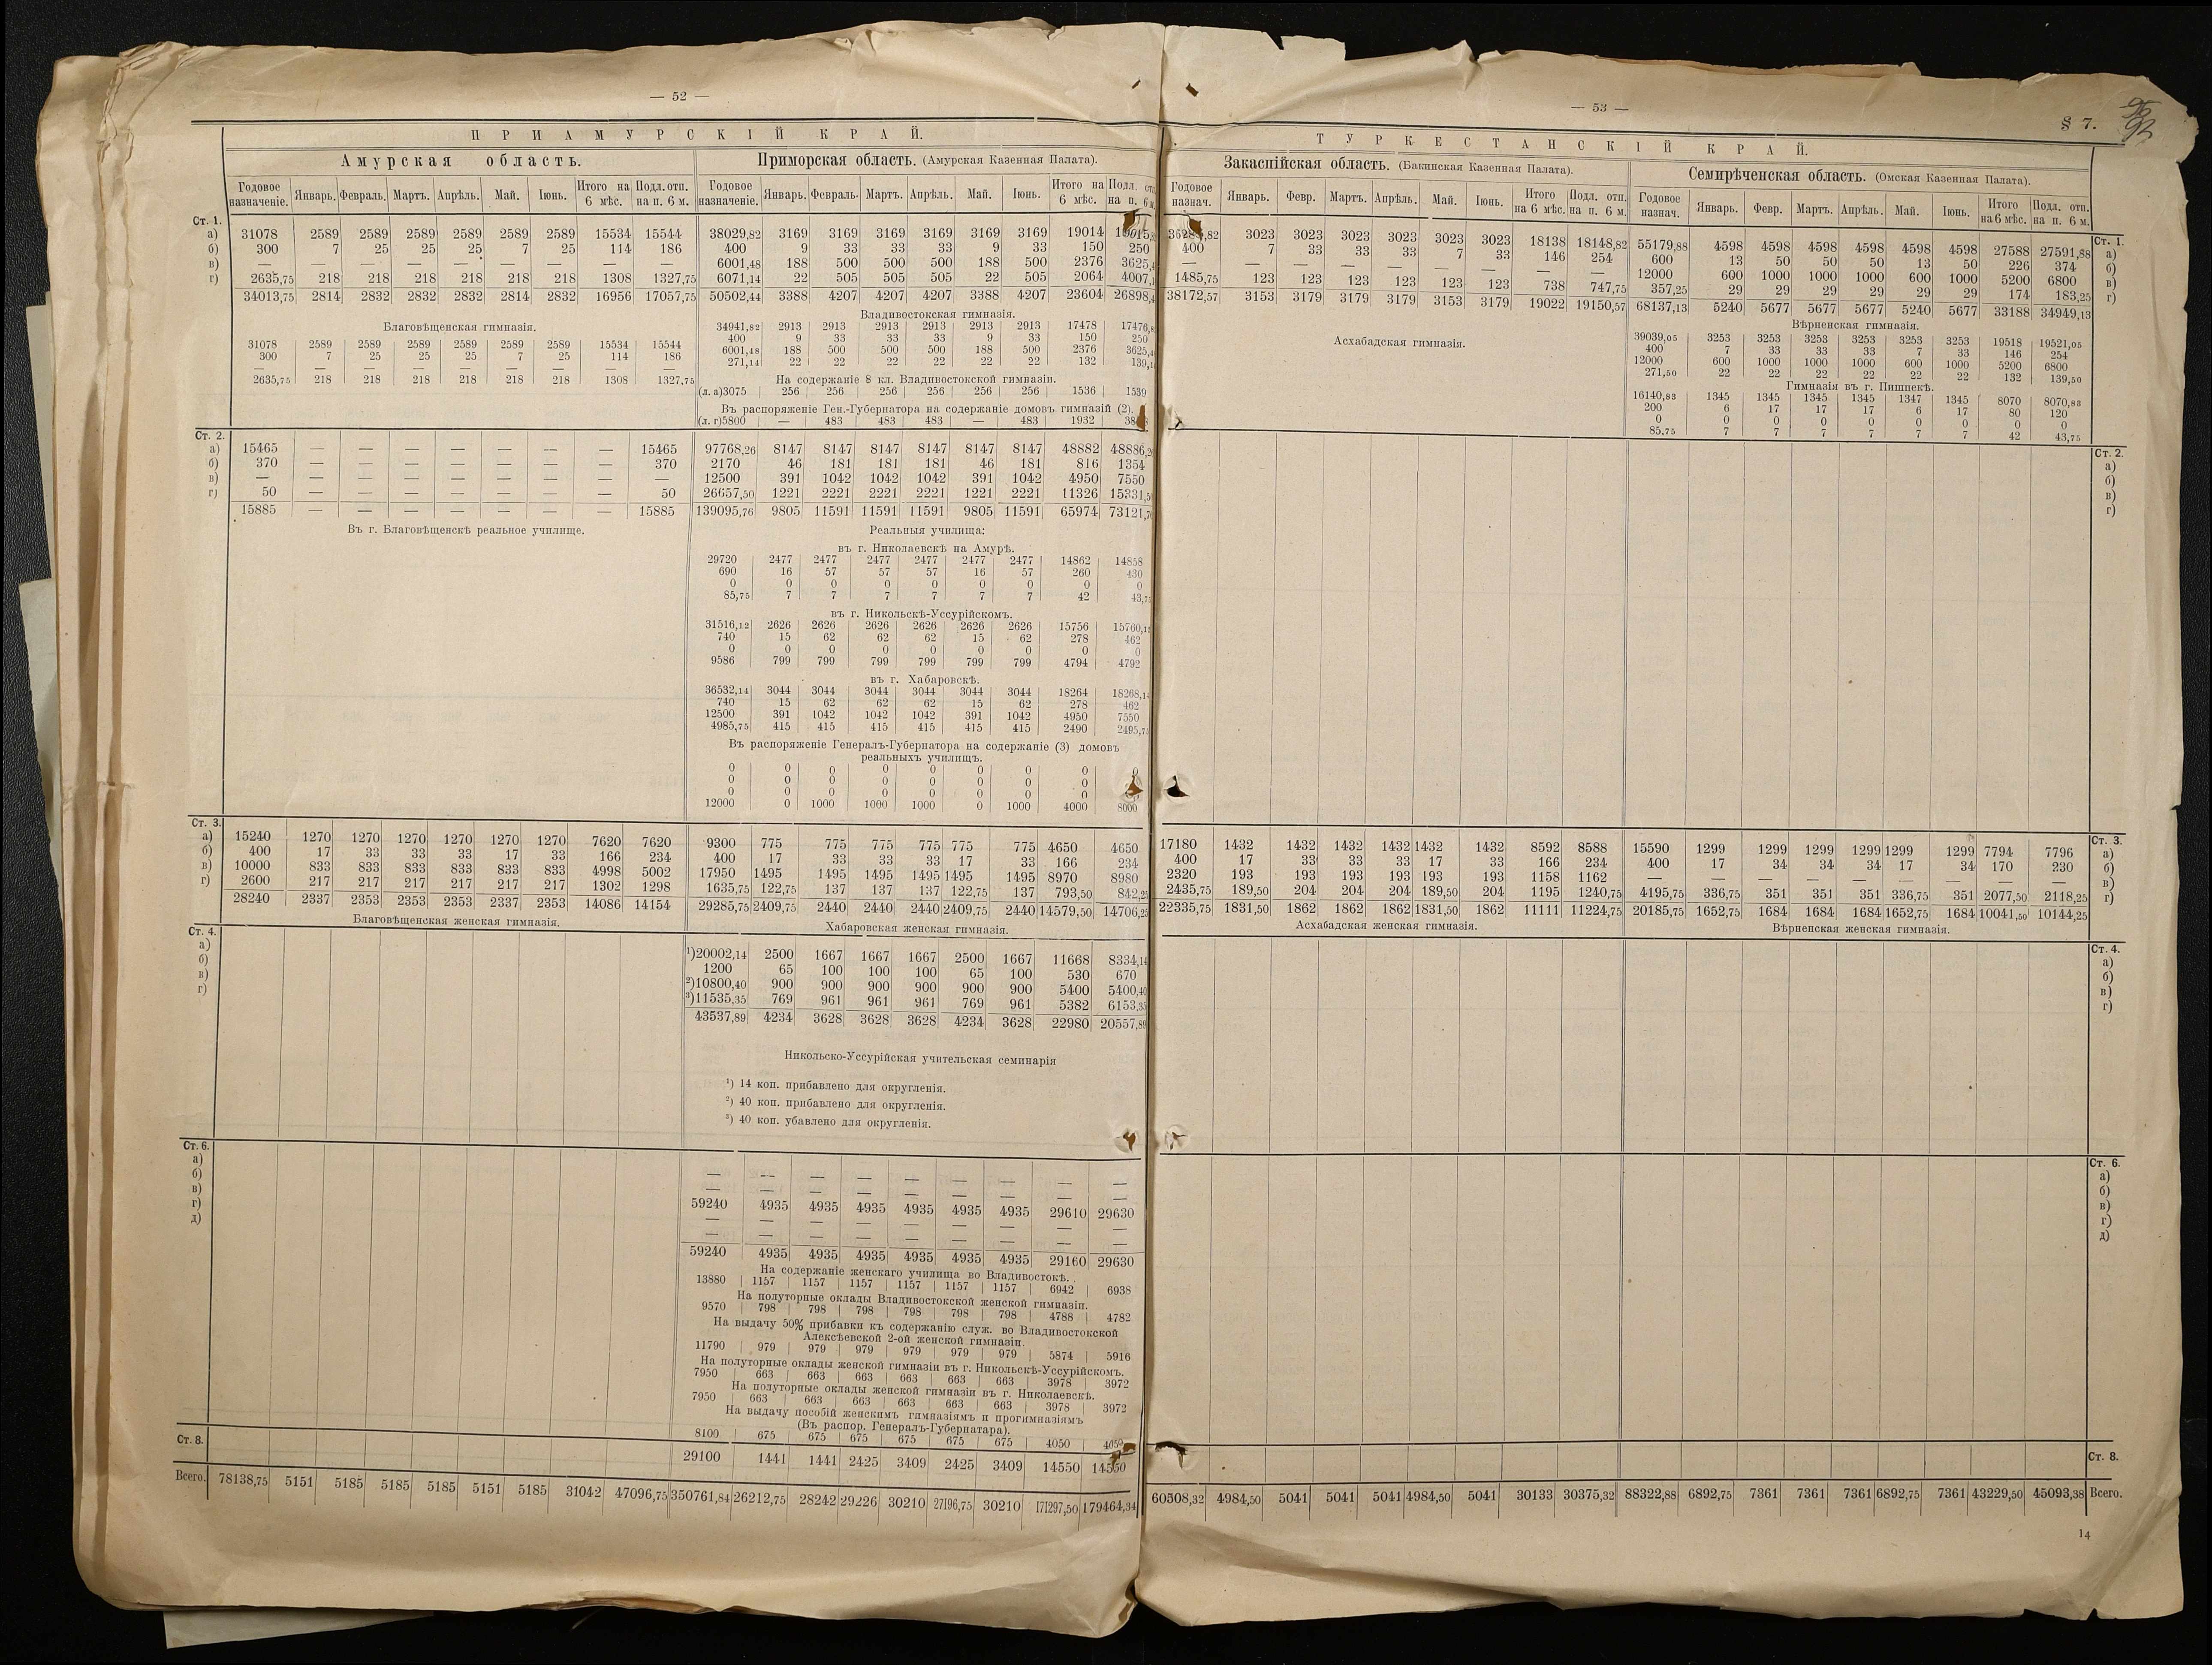 — 52 —
ПРІАМУРСКІЙ КРАЙ.
Амурская область.
Приморская область. (Амурская Казенная Палата).
Годовое назначеніе. Январь. Февраль. Мартъ. Апрѣль. Май. Іюнь. Итого на 6 мѣс. Подл. отп. на п. 6 м.
Годовое назначеніе. Январь. Февраль. Мартъ. Апрѣль. Май. Іюнь. Итого на 6 мѣс. Подл. отп. на п. 6 м.
Ст. 1.
а) 31078 2589 2589 2589 2589 2589 2589 15534 15544 38029,82 3169 3169 3169 3169 3169 3169 19014
б) 300 7 25 25 25 7 25 114 186 400 9 33 33 33 9 33 150 250
в) — — — — — — — — — 6001,48 188 500 500 500 188 500 2376
г) 2635,75 218 218 218 218 218 218 1308 1327,75 6071,14 22 505 505 505 22 505 2064
34013,75 2814 2832 2832 2832 2814 2832 16956 17057,75 50502,44 3388 4207 4207 4207 3388 4207 23604
Благовѣщенская гимназія.
31078 2589 2589 2589 2589 2589 2589 15534 15544
300 7 25 25 25 7 25 114 186
— — — — — — — — —
2635,75 218 218 218 218 218 218 1308 1327,75
Владивостокская гимназія.
34941,82 2913 2913 2913 2913 2913 2913 17478
400 9 33 33 33 9 33 150 250
6001,48 188 500 500 500 188 500 2376
271,14 22 22 22 22 22 22 132
На содержаніе 8 кл. Владивостокской гимназіи.
(л. а) 3075 256 256 256 256 256 256 1536 1539
Въ распоряженіе Ген.-Губернатора на содержаніе домовъ гимназій (2).
(л. г) 5800 — 483 483 483 — 483 1932
Ст. 2.
а) 15465 — — — — — — — 15465 97768,26 8147 8147 8147 8147 8147 8147 48882
б) 370 — — — — — — — 370 2170 46 181 181 181 46 181 816 1354
в) — — — — — — — — — 12500 391 1042 1042 1042 391 1042 4950 7550
г) 50 — — — — — — — 50 26657,50 1221 2221 2221 2221 1221 2221 11326
15885 — — — — — — — 15885 139095,76 9805 11591 11591 11591 9805 11591 65974
Въ г. Благовѣщенскѣ реальное училище.
Реальныя училища:
въ г. Николаевскѣ на Амурѣ.
29720 2477 2477 2477 2477 2477 2477 14862 14858
690 16 57 57 57 16 57 260 430
0 0 0 0 0 0 0 0 0
85,75 7 7 7 7 7 7 42
въ г. Никольскѣ-Уссурійскомъ.
31516,12 2626 2626 2626 2626 2626 2626 15756
740 15 62 62 62 15 62 278 462
0 0 0 0 0 0 0 0 0
9586 799 799 799 799 799 799 4794 4792
въ г. Хабаровскѣ.
36532,14 3044 3044 3044 3044 3044 3044 18264
740 15 62 62 62 15 62 278 462
12500 391 1042 1042 1042 391 1042 4950 7550
4985,75 415 415 415 415 415 415 2490
Въ распоряженіе Генералъ-Губернатора на содержаніе (3) домовъ
реальныхъ училищъ.
0 0 0 0 0 0 0 0 0
0 0 0 0 0 0 0 0 0
0 0 0 0 0 0 0 0 0
12000 0 1000 1000 1000 0 1000 4000 8000
Ст. 3.
а) 15240 1270 1270 1270 1270 1270 1270 7620 7620 9300 775 775 775 775 775 775 4650 4650
б) 400 17 33 33 33 17 33 166 234 400 17 33 33 33 17 33 166 234
в) 10000 833 833 833 833 833 833 4998 5002 17950 1495 1495 1495 1495 1495 1495 8970 8980
г) 2600 217 217 217 217 217 217 1302 1298 1635,75 122,75 137 137 137 122,75 137 793,50 842,25
28240 2337 2353 2353 2353 2337 2353 14086 14154 29285,75 2409,75 2440 2440 2440 2409,75 2440 14579,50 14706,25
Благовѣщенская женская гимназія.
Хабаровская женская гимназія.
Ст. 4.
а) ¹)20002,14 2500 1667 1667 1667 2500 1667 11668 8334,14
б) 1200 65 100 100 100 65 100 530 670
в) ²)10800,40 900 900 900 900 900 900 5400 5400,40
г) ³)11535,35 769 961 961 961 769 961 5382 6153,35
43537,89 4234 3628 3628 3628 4234 3628 22980 20557,89
Никольско-Уссурійская учительская семинарія
¹) 14 коп. прибавлено для округленія.
²) 40 коп. прибавлено для округленія.
³) 40 коп. убавлено для округленія.
Ст. 6.
а) — — — — — — — — —
б) — — — — — — — — —
в) 59240 4935 4935 4935 4935 4935 4935 29610 29630
г) — — — — — — — — —
д) — — — — — — — — —
59240 4935 4935 4935 4935 4935 4935 29160 29630
На содержаніе женскаго училища во Владивостокѣ.
13880 1157 1157 1157 1157 1157 1157 6942 6938
На полуторные оклады Владивостокской женской гимназіи.
9570 798 798 798 798 798 798 4788 4782
На выдачу 50% прибавки къ содержанію служ. во Владивостокской
Алексѣевской 2-ой женской гимназіи.
11790 979 979 979 979 979 979 5874 5916
На полуторные оклады женской гимназіи въ г. Никольскѣ-Уссурійскомъ.
7950 663 663 663 663 663 663 3978 3972
На полуторные оклады женской гимназіи въ г. Николаевскѣ.
7950 663 663 663 663 663 663 3978 3972
На выдачу пособій женскимъ гимназіямъ и прогимназіямъ
(Въ распор. Генералъ-Губернатара).
8100 675 675 675 675 675 675 4050 4050
Ст. 8. 29100 1441 1441 2425 3409 2425 3409 14550 14550
Всего. 78138,75 5151 5185 5185 5185 5151 5185 31042 47096,75 350761,84 26212,75 28242 29226 30210 27196,75 30210 171297,50 179464,34
— 53 —
§ 7.
ТУРКЕСТАНСКІЙ КРАЙ.
Закаспійская область. (Бакинская Казенная Палата).
Семирѣченская область. (Омская Казенная Палата).
Годовое назнач. Январь. Февр. Мартъ. Апрѣль. Май. Іюнь. Итого на 6 мѣс. Подл. отп. на п. 6 м.
Годовое назнач. Январь. Февр. Мартъ. Апрѣль. Май. Іюнь. Итого на 6 мѣс. Подл. отп. на п. 6 м.
Ст. 1.
3023 3023 3023 3023 3023 3023 18138 18148,82 55179,88 4598 4598 4598 4598 4598 4598 27588 27591,88 а)
400 7 33 33 33 7 33 146 254 600 13 50 50 50 13 50 226 374 б)
— — — — — — — — — 12000 600 1000 1000 1000 600 1000 5200 6800 в)
1485,75 123 123 123 123 123 123 738 747,75 357,25 29 29 29 29 29 29 174 183,25 г)
38172,57 3153 3179 3179 3179 3153 3179 19022 19150,57 68137,13 5240 5677 5677 5677 5240 5677 33188 34949,13
Асхабадская гимназія.
Вѣрненская гимназія.
39039,05 3253 3253 3253 3253 3253 3253 19518 19521,05
400 7 33 33 33 7 33 146 254
12000 600 1000 1000 1000 600 1000 5200 6800
271,50 22 22 22 22 22 22 132 139,50
Гимназія въ г. Пишпекѣ.
16140,83 1345 1345 1345 1345 1347 1345 8070 8070,83
200 6 17 17 17 6 17 80 120
0 0 0 0 0 0 0 0 0
85,75 7 7 7 7 7 7 42 43,75
Ст. 2.
а)
б)
в)
г)
Ст. 3.
17180 1432 1432 1432 1432 1432 1432 8592 8588 15590 1299 1299 1299 1299 1299 1299 7794 7796 а)
400 17 33 33 33 17 33 166 234 400 17 34 34 34 17 34 170 230 б)
2320 193 193 193 193 193 193 1158 1162 — — — — — — — — — в)
2435,75 189,50 204 204 204 189,50 204 1195 1240,75 4195,75 336,75 351 351 351 336,75 351 2077,50 2118,25 г)
22335,75 1831,50 1862 1862 1862 1831,50 1862 11111 11224,75 20185,75 1652,75 1684 1684 1684 1652,75 1684 10041,50 10144,25
Асхабадская женская гимназія.
Вѣрненская женская гимназія.
Ст. 4.
а)
б)
в)
г)
Ст. 6.
а)
б)
в)
г)
д)
Ст. 8.
60508,32 4984,50 5041 5041 5041 4984,50 5041 30133 30375,32 88322,88 6892,75 7361 7361 7361 6892,75 7361 43229,50 45093,38 Всего.
14